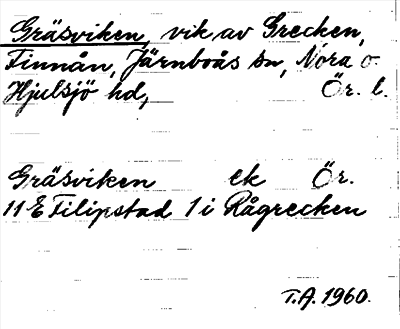 Gräsviken, vik av Grecken,
Finnån, Järnboås sn, Nora o
Hjulsjö hd, Ör. l.
Gräsviken ek Ör.
11 E Filipstad 1 i Rågrecken
T.A. 1960.